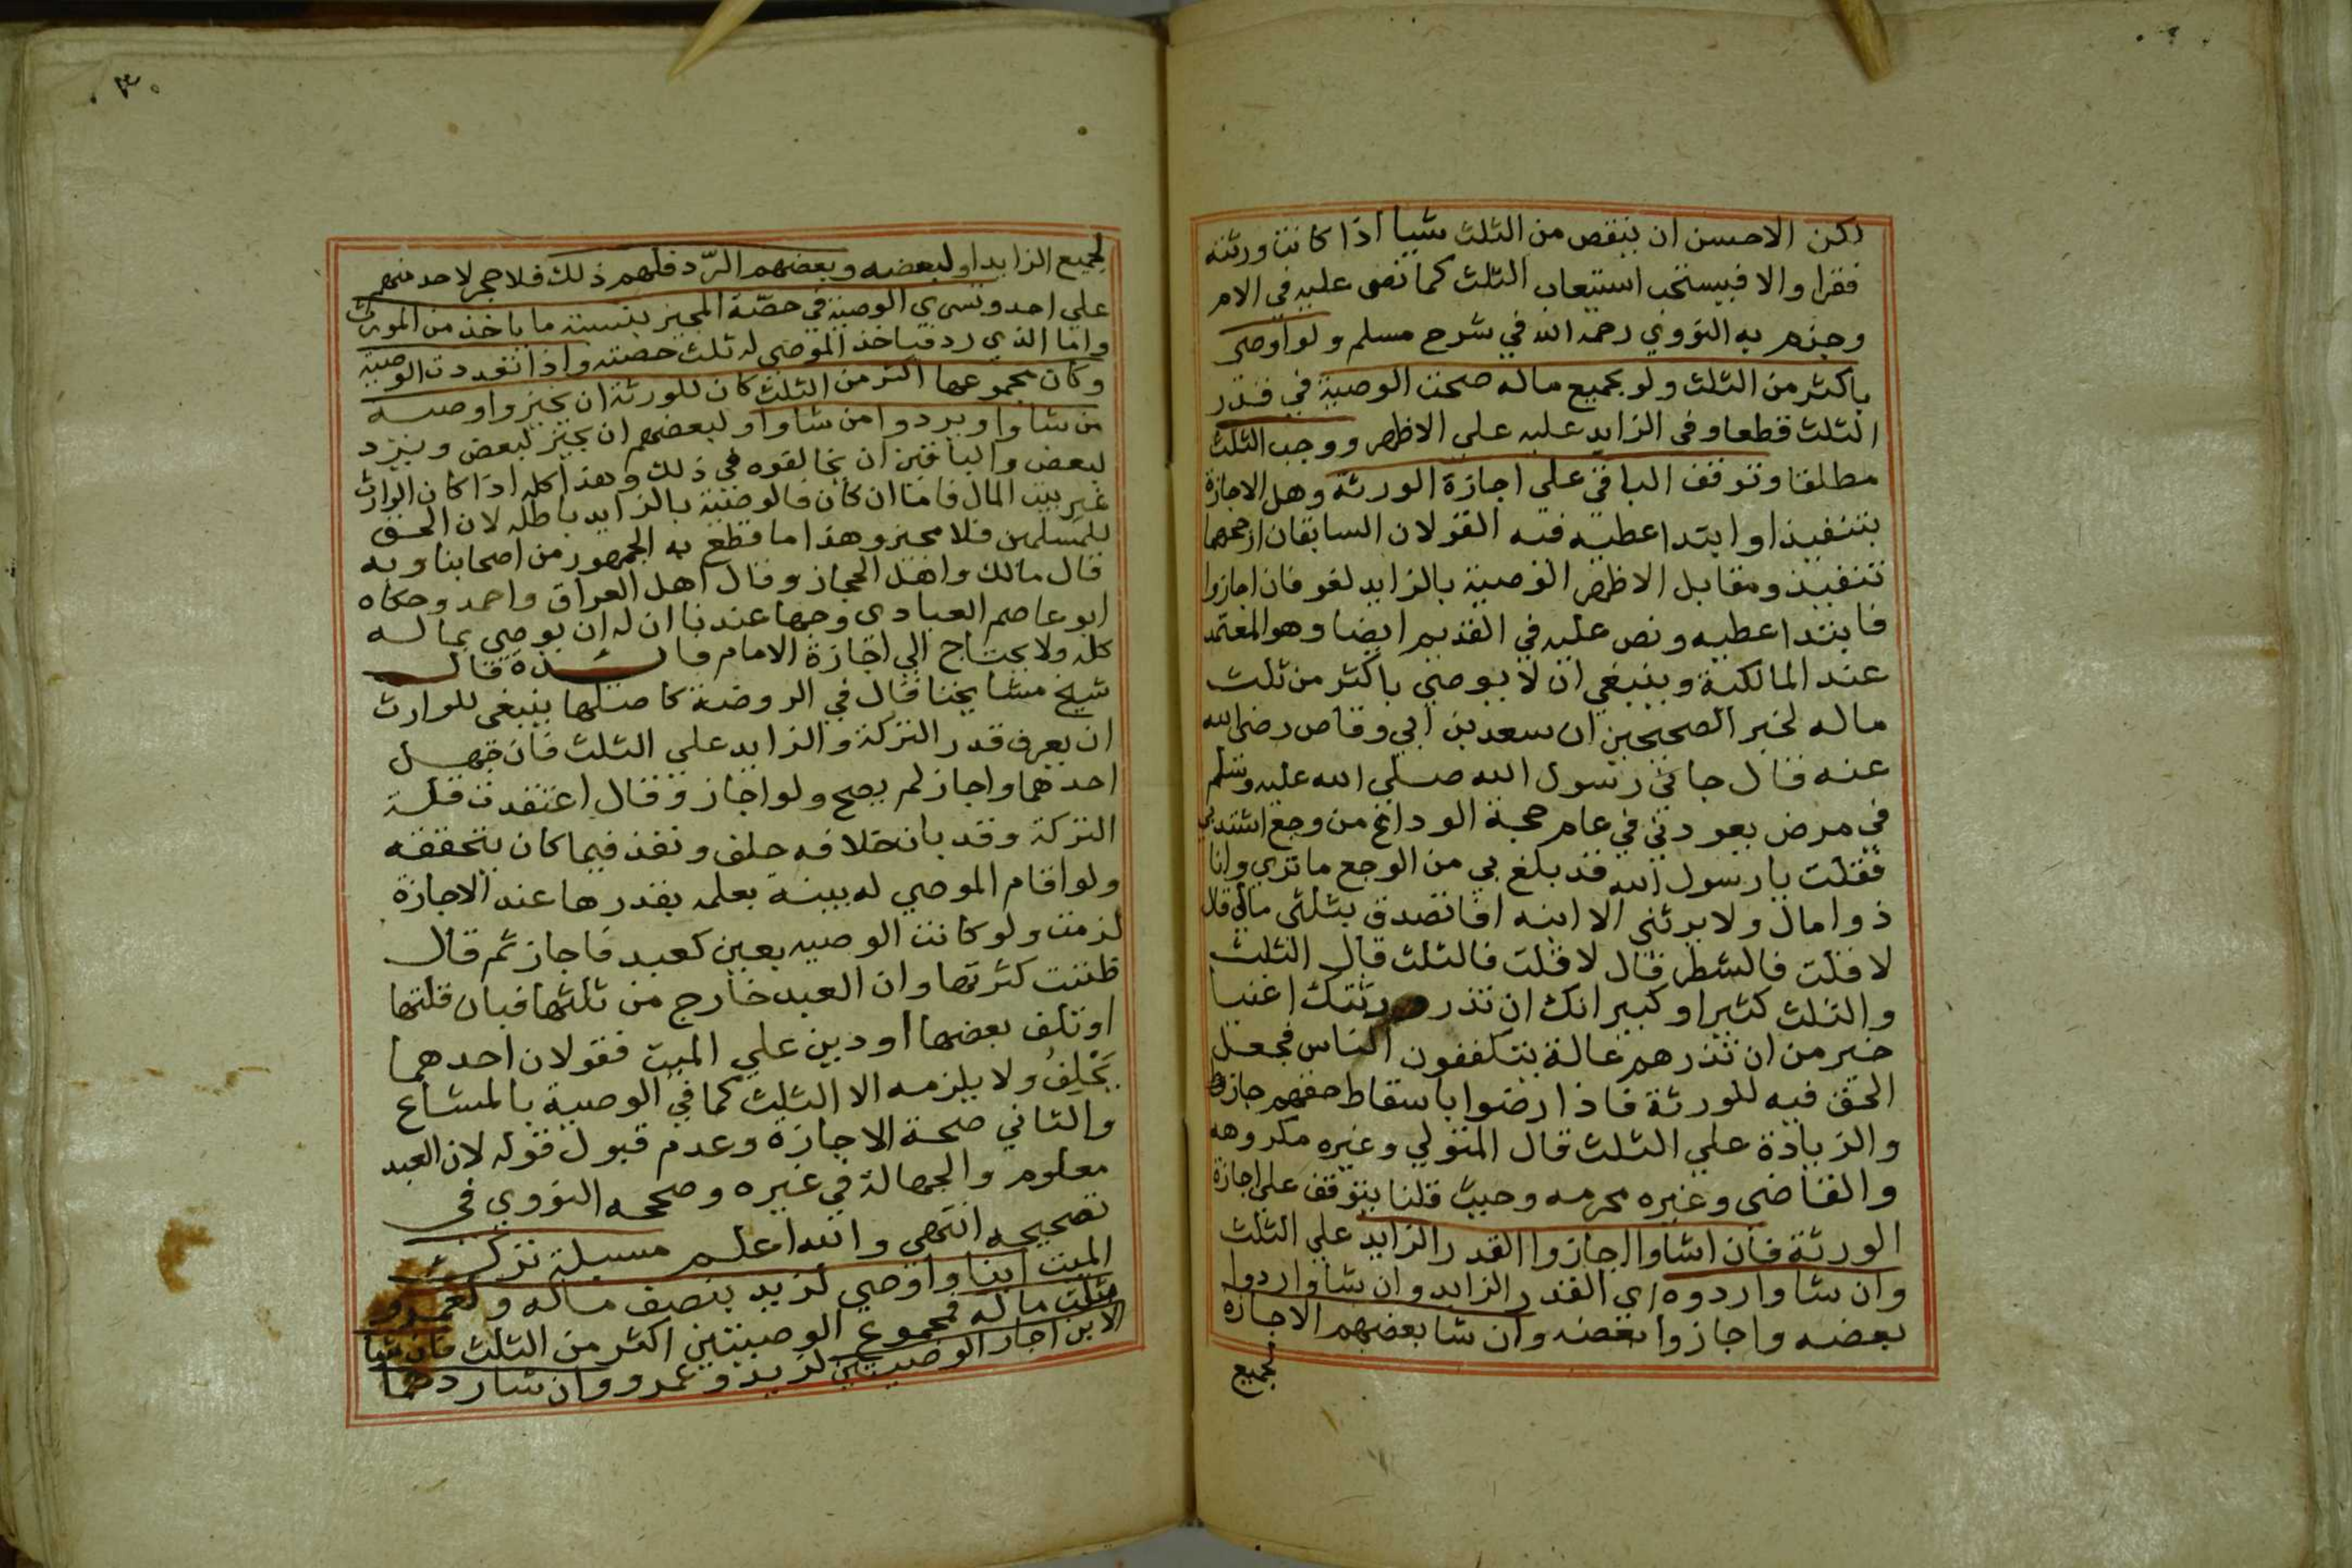 لكن الاحسن ان ينقص من الثلث شيا اذا كانت ورثته
فقرا والا فيستحب استيعاب الثلث كما نص عليه في الام
وجزم به النووي رحمه الله في شرح مسلم ولو اوصى
باكثر من الثلث ولو بجميع ماله صحت الوصية في قدر
الثلث قطعا وفى الزايد عليه علي الاظهر ووجب الثلث
مطلقا وتوقف الباقي علي اجازة الورثة وهل الاجازة
بتنفيذ او ابتدا عطيه فيه القولان السابقان ارجحهما
تنفيذ ومقابل الاظهر الوصية بالزايد لغو فان اجازوا
فابتدا عطيه ونص عليه في القديم ايضا وهو المعتمد
عند المالكية وينبغي ان لا يوصي باكثر من ثلث
ماله لخبر الصحيحين ان سعد بن ابي وقاص رضي الله
عنه قال جاني رسول الله صلى الله عليه وسلم
في مرض يعودني في عام حجة الوداع من وجع اشتد بي
فقلت يا رسول الله قد بلغ بي من الوجع ما تري وانا
ذوا مال ولا يرثني الا ابنه افاتصدق بثلثي مالي قال
لا قلت فالشطر قال لا قلت فالثلث قال الثلث
والثلث كثير او كبير انك ان تذر ورثتك اغنيا
خير من ان تذرهم عالة يتكففون الناس فجعل
الحق فيه للورثة فاذا رضوا باسقاط حقهم جاز
والزيادة علي الثلث قال المتولي وغيره مكروهه
والقاضى وغيره محرمه وحيث قلنا يتوقف علي اجازة
الورثة فان اشاوا اجازوا القدر الزايد علي الثلث
وان شاوا ردوه اي القدر الزايد وان شاوا ردوا
بعضه واجازوا بعضه وان شا بعضهم الاجازة
لجميع
٣٠
لجميع الزايد او لبعضه وبعضهم الرد فلهم ذلك فلا حجر لاحد منهم
علي احد وتسري الوصية في حصة المجيز بنسبة ما ياخذ من الموروث
واما الذي رد فياخذ الموصى له ثلث حصته واذا تعددت الوصية
وكان مجموعها اكثر من الثلث كان للورثة ان يجيزوا وصيه
من شاوا ويردوا من شاوا ولبعضهم ان يجيز لبعض ويرد
لبعض والباقين ان يخالفوه في ذلك وهذا كله اذا كان الوارث
غير بيت المال فاما ان كان فالوصية بالزايد باطله لان الحق
للمسلمين فلا مجيز وهذا ما قطع به الجمهور من اصحابنا وبه
قال مالك واهل الحجاز وقال اهل العراق واحمد وحكاه
ابو عاصم العبادى وجها عندنا ان له ان يوصي بماله
كله ولا يحتاج الي اجازة الامام فايدة قال
شيخ مشايخنا قال في الروضة كاصلها ينبغي للوارث
ان يعرف قدر التركة والزايد علي الثلث فان جهل
احدهما واجاز لم يصح ولو اجاز وقال اعتقدت قلة
التركة وقد بان خلافه حلف ونفذ فيما كان يتحققه
ولو اقام الموصي له بينة بعلمه بقدرها عند الاجازة
لزمت ولو كانت الوصيه بعين كعبد فاجاز ثم قال
ظننت كثرتها وان العبد خارج من ثلثها فبان قلتها
او تلف بعضها او دين علي الميت فقولان احدهما
يَحْلِفُ ولا يلزمه الا الثلث كما في الوصية بالمشاع
والثاني صحة الاجازة وعدم قبول قوله لان العبد
معلوم والجهالة في غيره وصححه النووي في
تصحيحه انتهي والله اعلم مسيلة تركـ
الميت ابنا واوصي لزيد بنصف ماله ولعمرو
بثلث ماله فمجموع الوصيتين اكثر من الثلث فان شا
الابن اجاز الوصيتين لزيد وعمرو وان شا ردهما